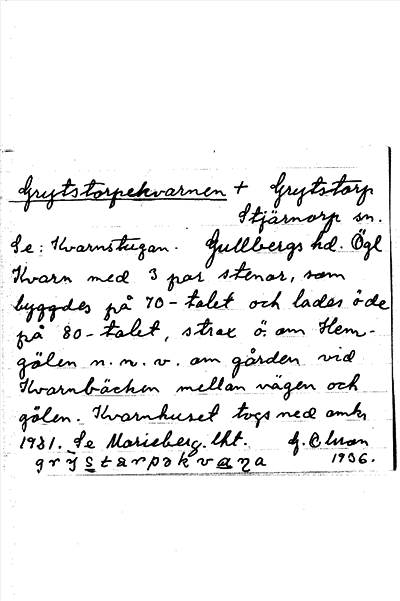 Grytstorpekvarnen + Grytstorp
Stjärnorp sn.
Se: Kvarnstugan. Gullbergs hd. Ögl
Kvarn med 3 par stenar, som
byggdes på 70-talet och lades öde
på 80-talet, strax ö. om Hem-
gölen n.n.v. om gården vid
Kvarnbäcken mellan vägen och
gölen. Kvarnhuset togs ned omkr
1931. Se Marieberg. lht.
1936.